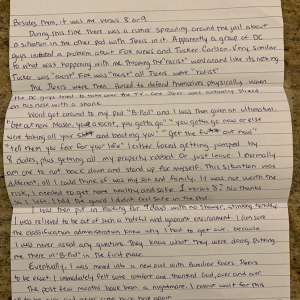 Besides Prom, it was me versus 8 or 9
During this time there was a rumor spreading around the jail about
a situation in the other pod with Jews in it. Apparently a group of DC
guys initiated a problem about Fox News and Tucker Carlson. Very similar
to what was happening with me. Throwing the "racist" word around like its nothing.
Tucker was "racist" Fox was "racist" all Jews were "racist"
The Jews were then forced to defend themselves physically when
the DC guys tried to take over the TV. One Jew was actually
on his neck with a shank.
Word got around to my pod "B-Pod" and I was then given an ultimatum.
"Get out now Mason, your a racist, you gotta go" "you gotta go now or else
were taking all your and beating you" "Get the out now"
"tell them you fear for your life" I either faced getting jumped by
8 dudes, plus getting all my property robbed or just leave. I normally
am one to not back down and stand up for myself. This situation was
different, all I could think of was my son and family. It was not worth the
I needed to get home healthy and safe. I to No thanks
So I left. I told the guard I didnt feel safe in the pod
I was then put in with no shower,
I was relieved to be out of such a hateful and unsecure environment. I am sure
the classification administration knew why I had to get out, because
I was never asked any questions. They knew what they were doing putting
me there in "B-Pod" in the first place.
Eventually I was moved into a new pod with familiar faces. Jews
to be exact. I immediately felt some comfort and thanked God, over and over.
The past few months have been a nightmare. I cannot wait for this